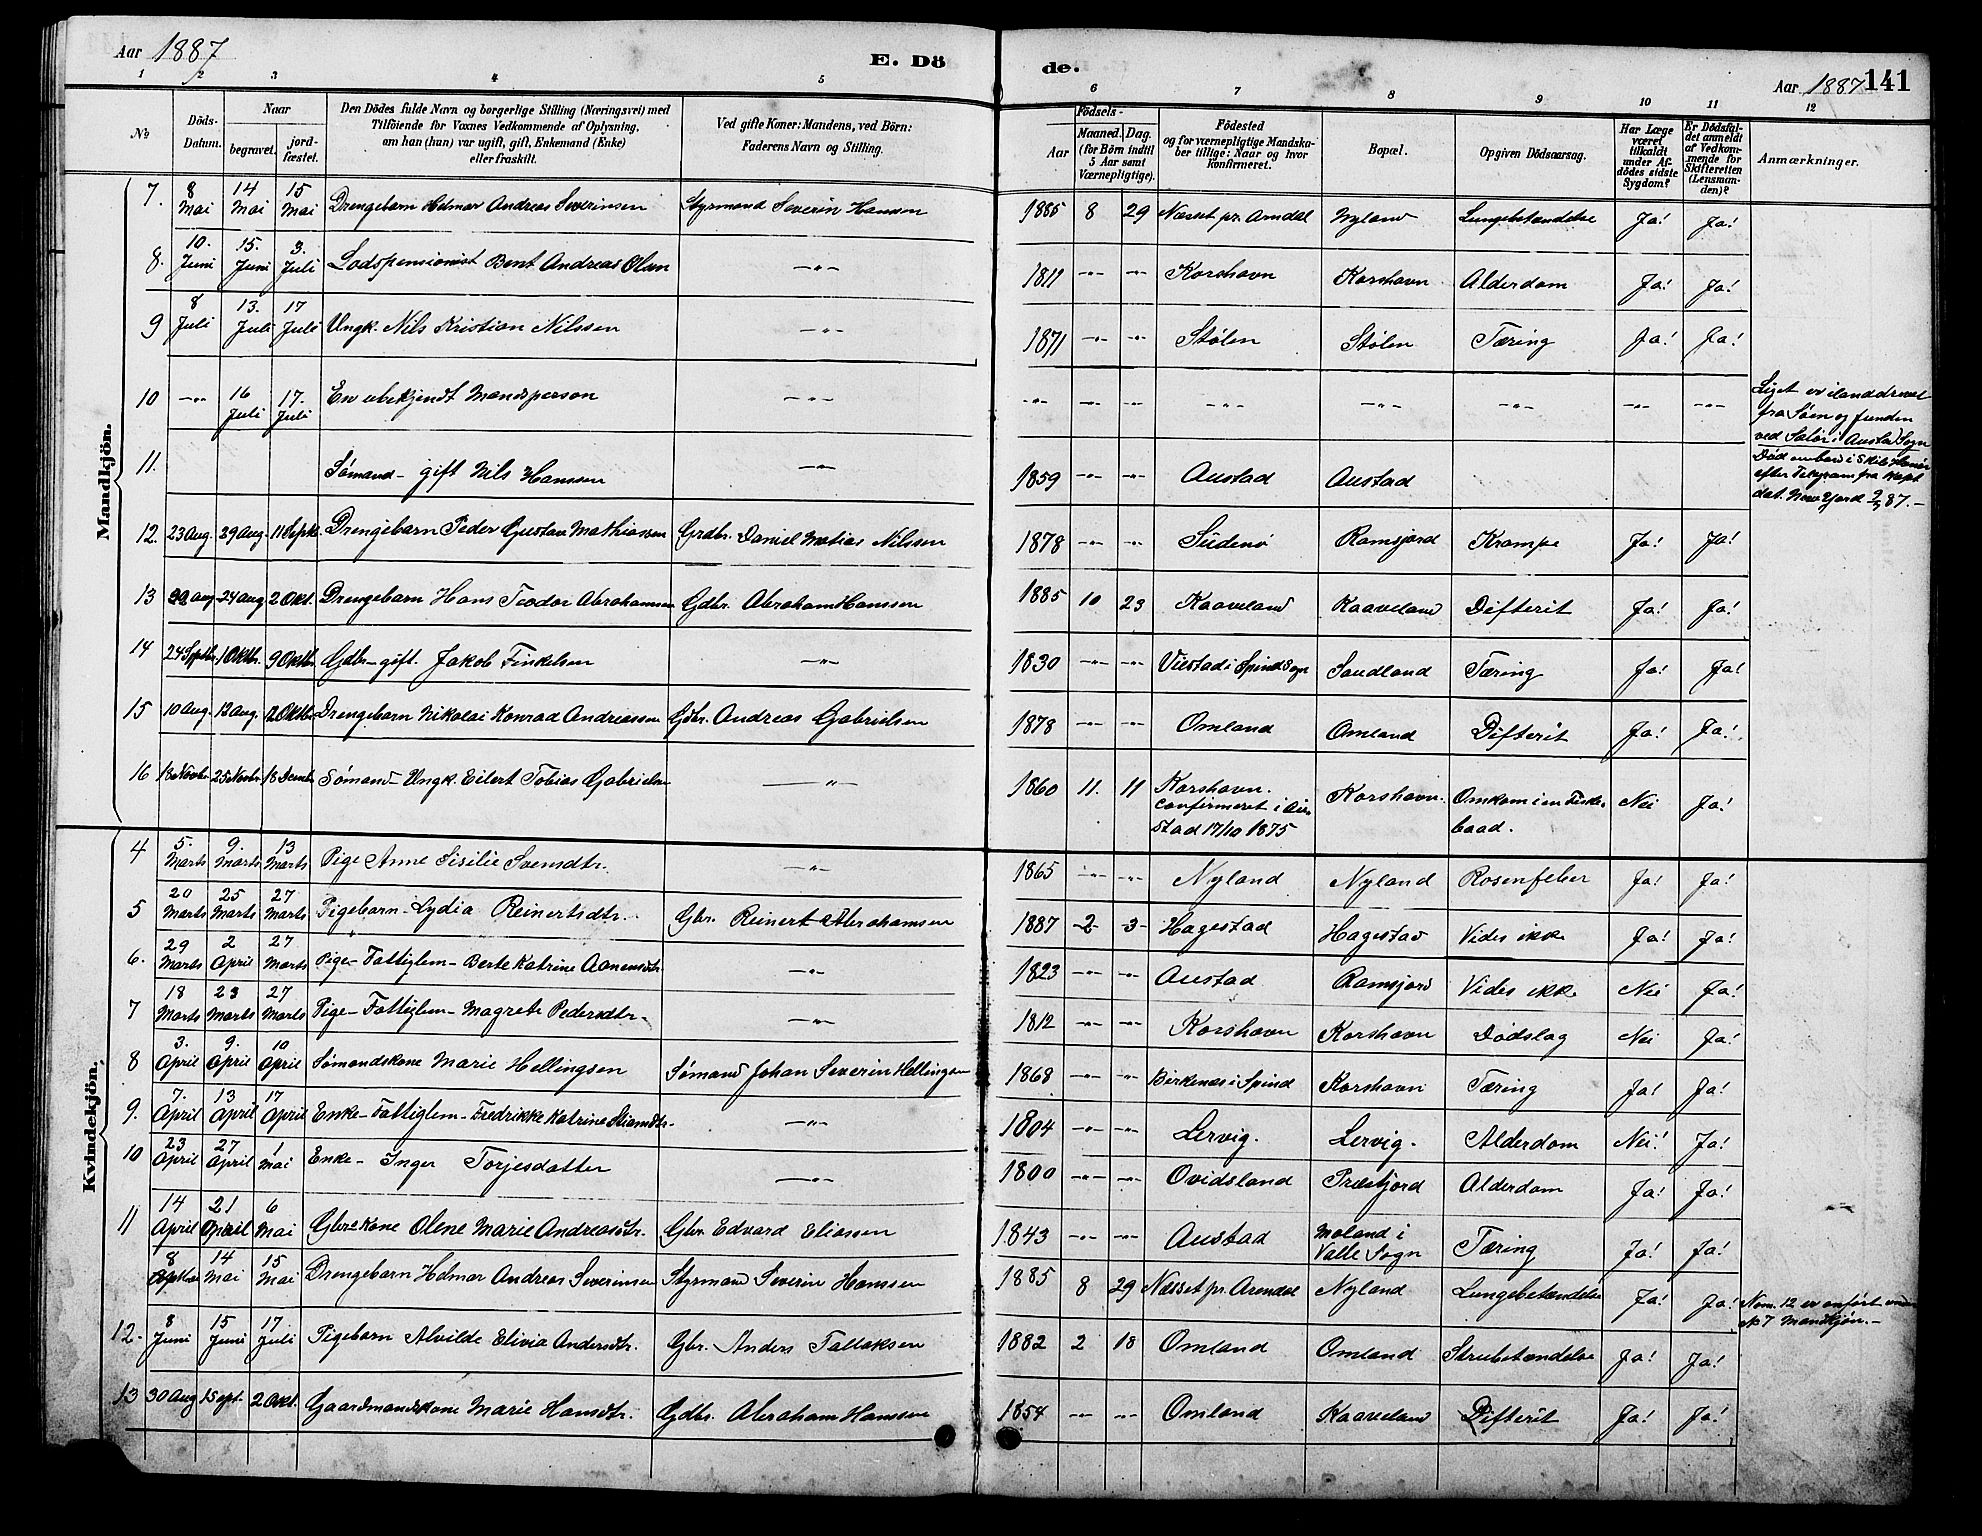 Aar 1887 E. Dö de. Aar 1887 141
1 2 3 4 5 6 7 8 9 10 11 12
No
Döds-
Datum.
Naar
begravet.
jord-
fæstet.
Den Dödes fulde Navn og borgerlige Stilling (Næringsvei) med
Tilföiende for Voxnes Vedkommende af Oplysning,
om han (hun) var ugift, gift, Enkemand (Enke)
eller fraskilt.
Ved gifte Koner: Mandens, ved Börn:
Faderens Navn og Stilling.
Födsels-
Aar
Maaned. Dag.
(for Börn indtil
5 Aar samt
Værnepligtige).
Födested
og for værnepligtige Mandska-
ber tillige: Naar og hvor
konfirmeret.
Bopæl.
Opgiven Dödsaarsag.
Har Læge
været
tilkaldt
under Af-
dödes sidste
Sygdom?
Er Dödsfal-
det anmeldt
af Vedkom-
mende for
Skifteretten
(Lensman-
den)?
Anmærkninger.
Mandkjön.
7. 8 Mai 14 Mai 15 Mai Drengebarn Helmar Andreas Severinsen Styrmand Severin Hansen 1885 8 29 Næsset pr. Arendal Nyland Lungebetændelse Ja! Ja!
8. 10. Juni 15. Juni 3. Juli Lodspensionist Bent Andreas Olsen -"- 1811 -"- -"- Korshavn Korshavn Alderdom Ja! Ja!
9 8 Juli 13. Juli 17 Juli Ungk. Nils Kristian Nilssen -"- 1871 -"- -"- Stølen Stølen Tæring Ja! Ja!
10 -"- 16 Juli 17. Juli En ubekjendt Mandsperson -"- -"- -"- -"- -"- -"- -"- -"- -"- Liget er ilanddrevet
fra Søen og funden
ved Salør i Austad Sogn
11. Sømand - gift Nils Hanssen -"- 1859 Austad Austad Død ombord i Skib
efter Telegram fra Kapt
dat. New York 87. -
12. 23 Aug. 29 Aug. 11 Septb. Drengebarn Peder Gustav Mathiassen Grdbr. Daniel Matias Nilssen 1878 -"- -"- Ramsjord Krampe Ja! Ja!
13 22 Aug 24 Aug 2 Okt. Drengebarn Hans Teodor Abrahamsen Gdbr. Abraham Hanssen 1885 10 23 Kaaveland Kaaveland Difterit Ja! Ja!
14 24 Septbr. 1 Oktbr. 9 Oktbr Gdbr - gift. Jakob Finkelsen -"- 1830 -"- -"- Viestad i Spind Sogn Sandland Tæring Ja! Ja!
15 10 Aug. 12 Aug. 2 Oktbr Drengebarn Nikolai Konrad Andreassen Gdbr. Andreas Gabrielsen 1878 -"- -"- Omland Omland Difterit Ja! Ja!
16 18 Novbr 25 Novbr. 18 Decmbr Sømand - Ungk. Eilert Tobias Gabrielsen -"- 1860 11. 11 Korshavn.
Confirmeret i Au-
stad 17/10 1875 Korshavn. Omkom i en Fiske-
baad. Nei Ja!
Kvindekjön.
4 5. Marts 9. Marts 13 Marts Pige Anne Sisilie Svensdtr. -"- 1865 -"- -"- Nyland Nyland Rosenfeber Ja! Ja!
5 20 Marts 25 Marts 27 Marts Pigebarn - Lydia Reinertsdtr. Gbr. Reinert Abrahamsen 1887 2 3 Hagestad Hagestad Vides ikke Ja! Ja!
6. 29 Marts 2 April 27 Marts Pige - Fattiglem - Berte Katrine Aanensdtr -"- 1823 -"- -"- Austad Ramsjord Vides ikke Nei Ja!
7 18 Marts 23 Marts 27 Marts Pige - Fattiglem - Magrete Pedersdtr. -"- 1812 -"- -"- Korshavn Korshavn Dødslag Nei Ja!
8 3. April 9. April 10 April Sømandskone Marie Hellingsen Sømand Johan Severin Hellingsen 1868 -"- -"- Birkenæs i Spind Korshavn Tæring Ja! Ja!
9. 7. April 13 April 17 April Enke - Fattiglem - Fredrikke Katrine -"- 1804 -"- -"- Lervig. Lervig. Alderdom Nei! Ja!
10 23 April 27 April 1 Mai Enke - Inger Torjesdatter -"- 1800 -"- -"- Ovidsland Præstjord Alderdom Ja! Ja!
11 14 April 21 April 6 Mai Gbrs Kone Olene Marie Andreasdtr. Gbr. Edvard Eliassen 1843 -"- -"- Austad Moland i
Valle Sogn Tæring Ja! Ja!
8 14 Mai 15 Mai Drengebarn Helmar Andreas Severinsen Styrmand Severin Hanssen 1885 8 29 Næsset pr. Arendal Nyland Lungebetændelse Ja! Ja! Nom. 12 er anført under
No 7 Mandkjøn. -
12. 8 Juni 15 Juni 17 Juli Pigebarn Alvilde Elivia Andersdtr. Gbr. Anders Tallaksen 1882 2 18 Omland Omland Strubetændelse Ja! Ja!
13 30 Aug 1 Sept. 2 Okt. Gaardmandskone Marie Hansdtr. Gdbr. Abraham Hanssen 1854 -"- -"- Omland Kaaveland Difterit Ja! Ja!